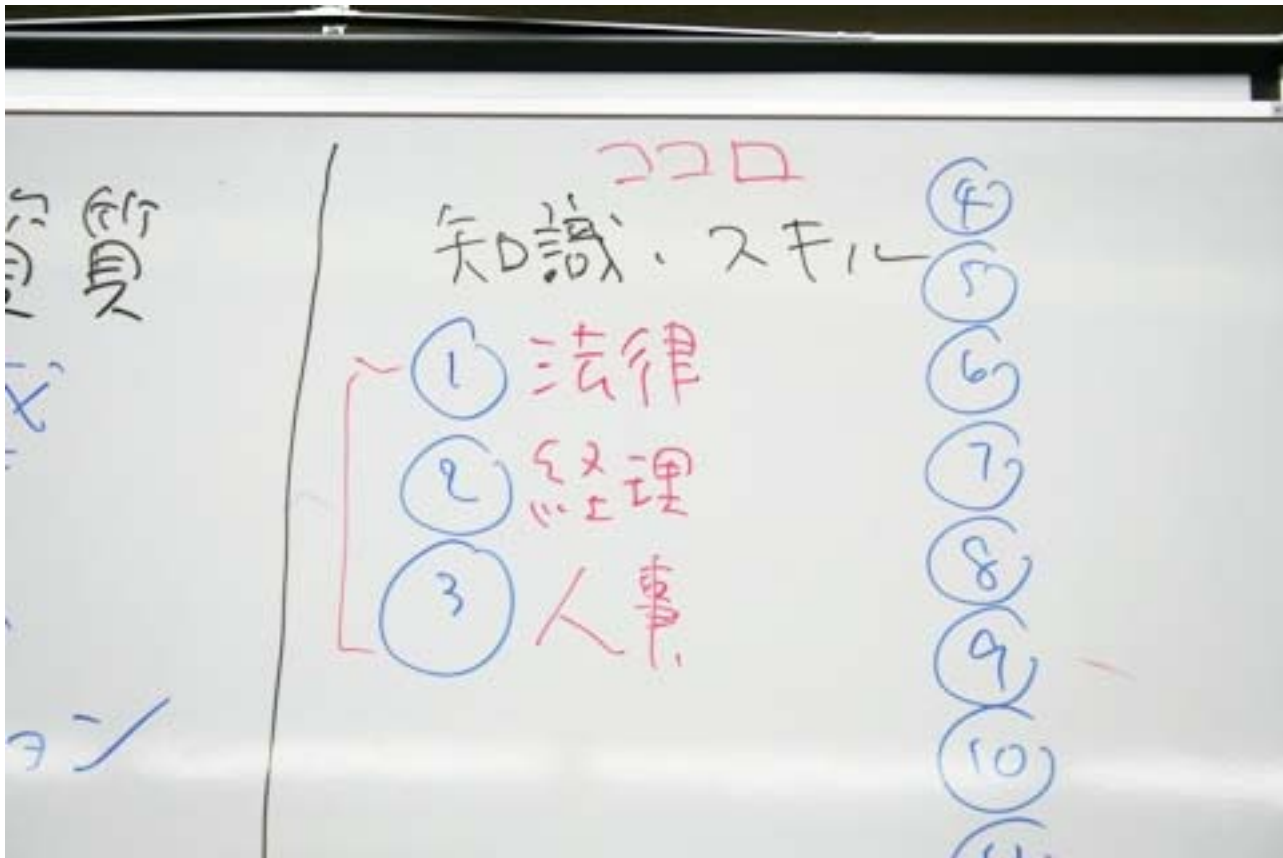 資質
ョン
ココロ
知識・スキル
① 法律
② 経理
③ 人事
④
⑤
⑥
⑦
⑧
⑨
⑩